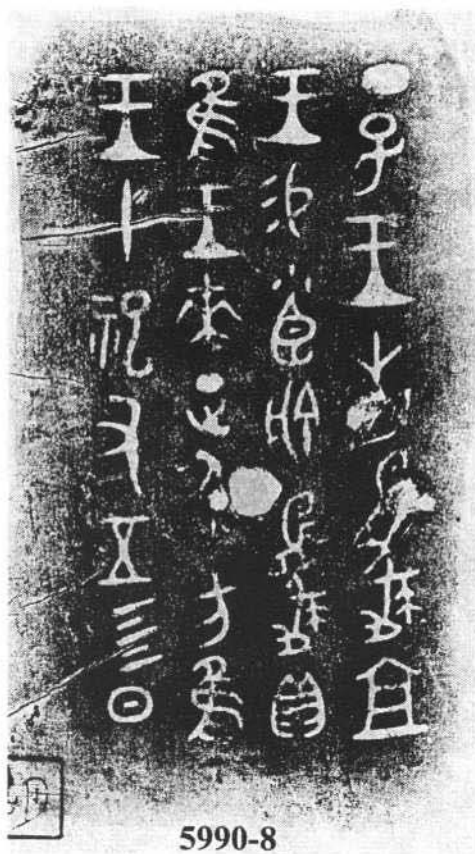 丁巳王省夔且
王易小臣艅夔貝
隹王來正人方隹
王十祀又五肜日
5990-8